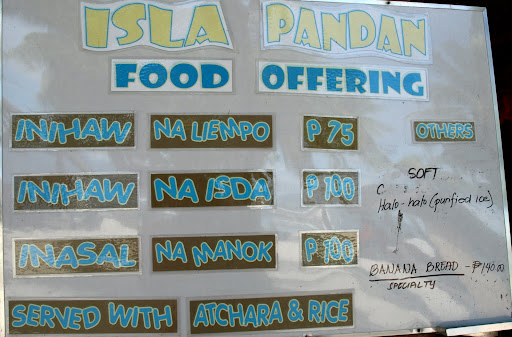 ISLA PANDAN
FOOD OFFERING
INIHAW NA LIEMPO P 75
INIHAW NA ISDA P 100
INASAL NA MANOK P 100
SERVED WITH ATCHARA & RICE
OTHERS
SOFT
C
Halo-halo (purified ice)
BANANA BREAD - ₱140.00
SPECIALTY